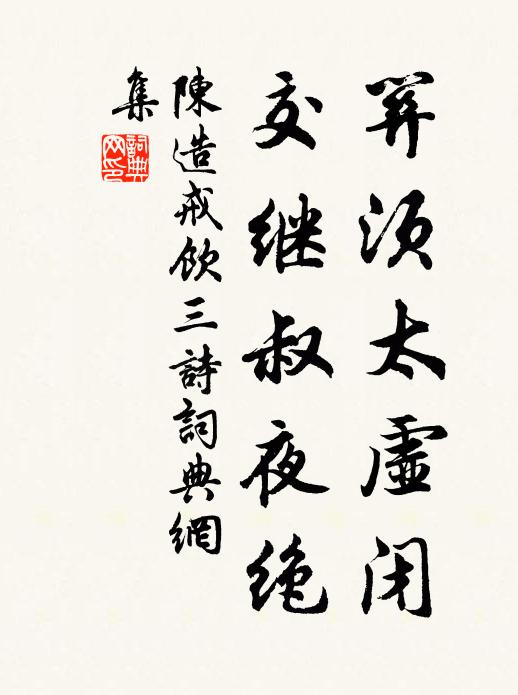 须太虚闭
交继叔夜绝
陳造戒飲三詩詞典網
集
詞典网印